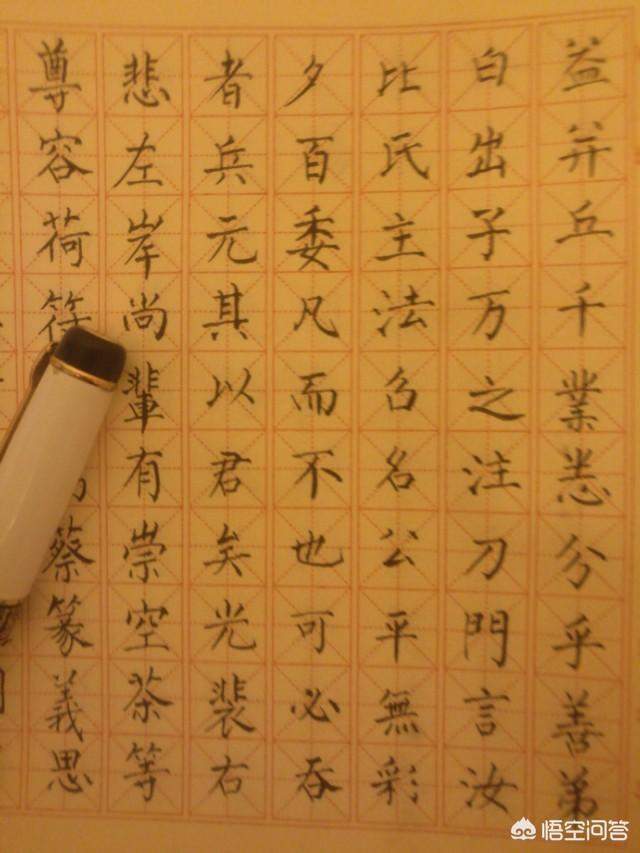 益并丘千業恙分乎善弟
白出子万之注刀門言汝
比氏主法名公平無彩
夕百委凡而不也可必吞
者兵元其以君矣光裴右
悲左岸尚輩有崇空茶等
尊容荷符蔡篆義思
悟空问答